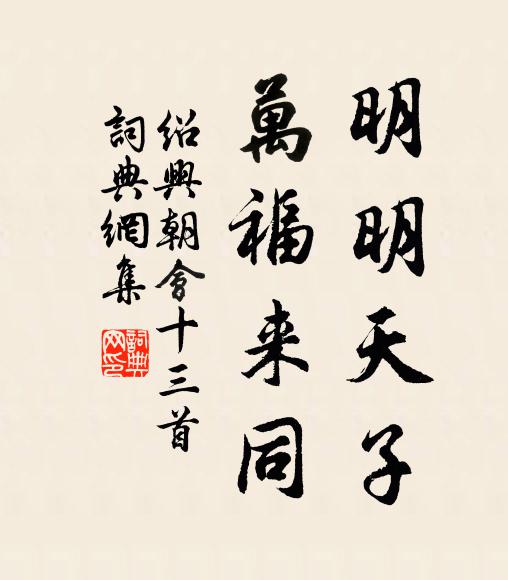 明明天子
萬福来同
紹興朝會十三首
詞典網集
詞典网印